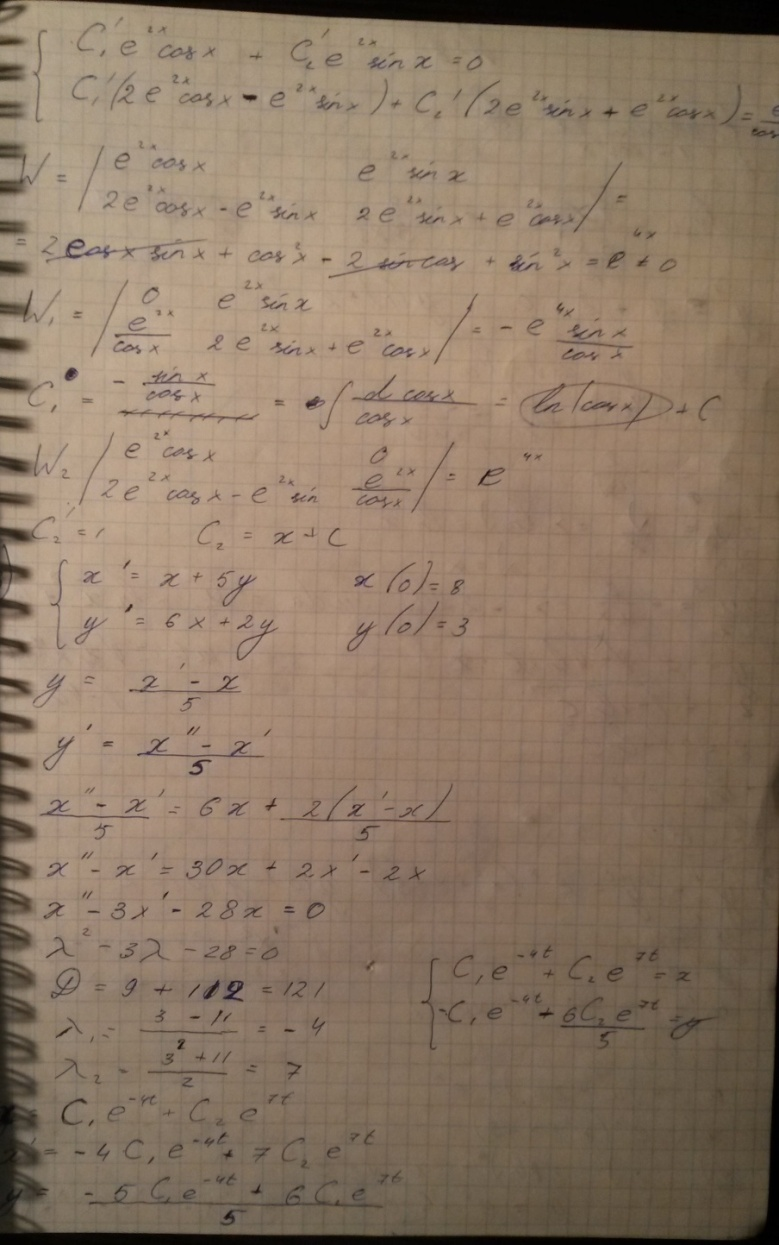 C₁'e^{2x}cosx + C₂'e^{2x}sinx = 0
C₁'(2e^{2x}cosx - e^{2x}sinx) + C₂'(2e^{2x}sinx + e^{2x}cosx) =
W = | e^{2x}cosx e^{2x}sinx
2e^{2x}cosx - e^{2x}sinx 2e^{2x}sinx + e^{2x}cosx | =
= 2cosx sinx + cos²x - 2 sin cos + sin²x = e^{4x} ≠ 0
W₁ = | 0 e^{2x}sinx
e^{2x}/cosx 2e^{2x}sinx + e^{2x}cosx | = - e^{4x} sinx/cosx
C₁ = - sinx/cosx = ∫ d cosx/cosx = ln|cosx| + C
W₂ | e^{2x}cosx 0
2e^{2x}cosx - e^{2x}sin e^{2x}/cosx | = e^{4x}
C₂' = 1 C₂ = x + C
x' = x + 5y x(0) = 8
y' = 6x + 2y y(0) = 3
y = (x' - x)/5
y' = (x'' - x')/5
(x'' - x')/5 = 6x + 2(x' - x)/5
x'' - x' = 30x + 2x' - 2x
x'' - 3x' - 28x = 0
λ² - 3λ - 28 = 0
D = 9 + 112 = 121
λ₁ = (3 - 11)/2 = - 4
λ₂ = (3 + 11)/2 = 7
C₁e^{-4t} + C₂e^{7t}
x' = - 4C₁e^{-4t} + 7C₂e^{7t}
y = (- 5C₁e^{-4t} + 6C₂e^{7t})/5
C₁e^{-4t} + C₂e^{7t} = x
-C₁e^{-4t} + 6C₂e^{7t}/5 = y